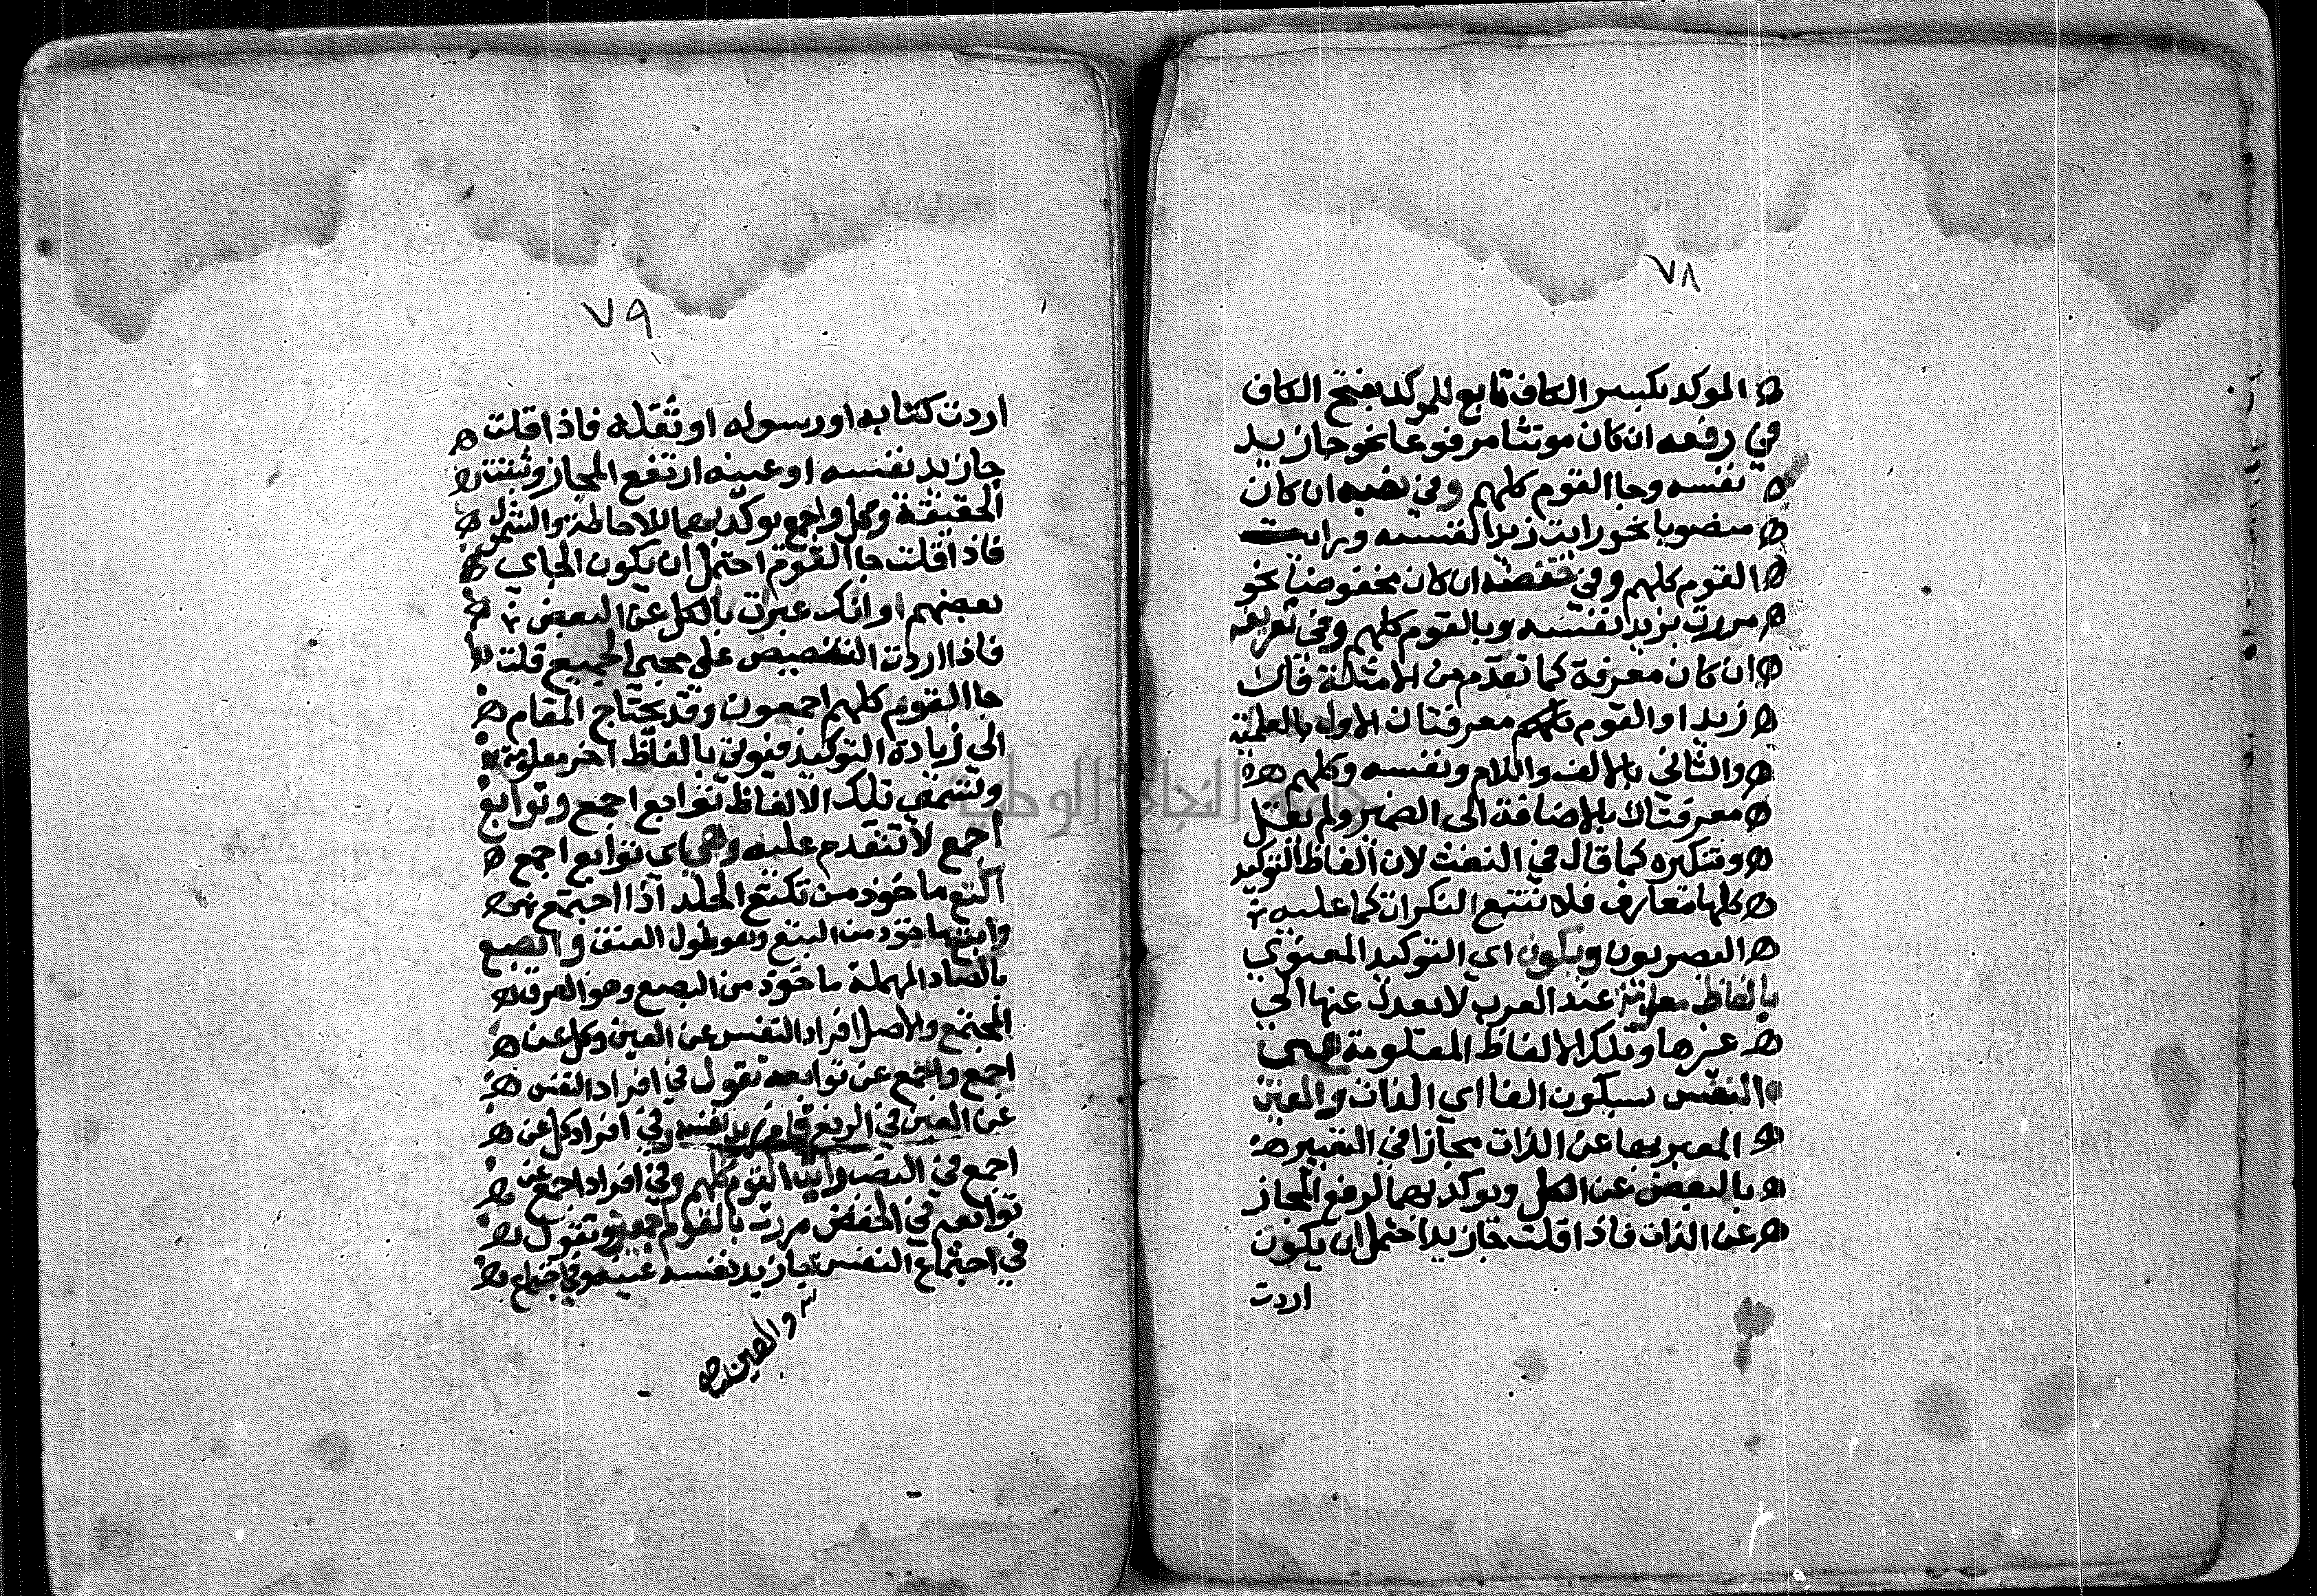 ٧٨
الموكد بكسر الكاف تابع للموكد بفتح الكاف
في رفعه ان كان موتثا مرفوعا نحو جا زيد
نفسه وجا القوم كلهم وفي نصبه ان كان
منصوبا نحو رايت زيدا نفسه ورايت
القوم كلهم وفي خفضه ان كان مخفوضا نحو
مررت بزيد نفسه وبالقوم كلهم وفي تعريفه
ان كان معرفة كما تقدم من الامثلة فان
زيد او القوم معرفتان الاول بالعلمية
والثاني بالالف واللام ونفسه وكلهم
معرفتان بالاضافة الى الضمير ولم يقل
وتنكيره كما قال في النعت لان الفاظ التوكيد
كلها معارف فلا تتبع النكرات كما عليه
البصريون ويكون اي التوكيد المعنوي
بالفاظ معلومة عند العرب لا يعدل عنها الي
غيرها وتلك الالفاظ المعلومة هي
النفس بسكون الفا اي الذات والعين
المعبر بها عن الذات مجازا في التعبير
بالبعض عن الكل ويوكد بهما لرفع المجاز
عن الذات فاذا قلت جا زيد احتمل ان يكون
اردت
٧٩
اردت كتابه او رسوله او ثقله فاذا قلت
جا زيد نفسه او عينه ارتفع المجاز وثبتت
الحقيقة وكل واجمع يوكد بهما للاحاطة والشمول
فاذا قلت جا القوم احتمل ان يكون الجاي
بعضهم او انك عبرت بالكل عن البعض
فاذا اردت التنصيص على مجي الجميع قلت
جا القوم كلهم اجمعون وقد يحتاج المقام
الي زيادة التوكيد فيوتي بالفاظ اخر معلومة
وتسمي تلك الالفاظ توابع اجمع وتوابع
اجمع لا تتقدم عليه وهي اي توابع اجمع
اكتع ماخوذ من تكتع الجلد اذا اجتمع
وابتع ماخوذ من البتع وهو طول العنق وابصع
بالصاد المهملة ماخوذ من البصع وهو العرق
المجتمع والاصل افراد النفس عن العين وكل عن
اجمع واجمع عن توابعه تقول في افراد النفس
عن العين في الرفع قام زيد نفسه وفي افراد كل عن
اجمع في النصب رايت القوم كلهم وفي افراد اجمع عن
توابعه في الخفض مررت بالقوم اجمعين وتقول
في اجتماع النفس جا زيد نفسه عينه وفي اجتماع
والعين